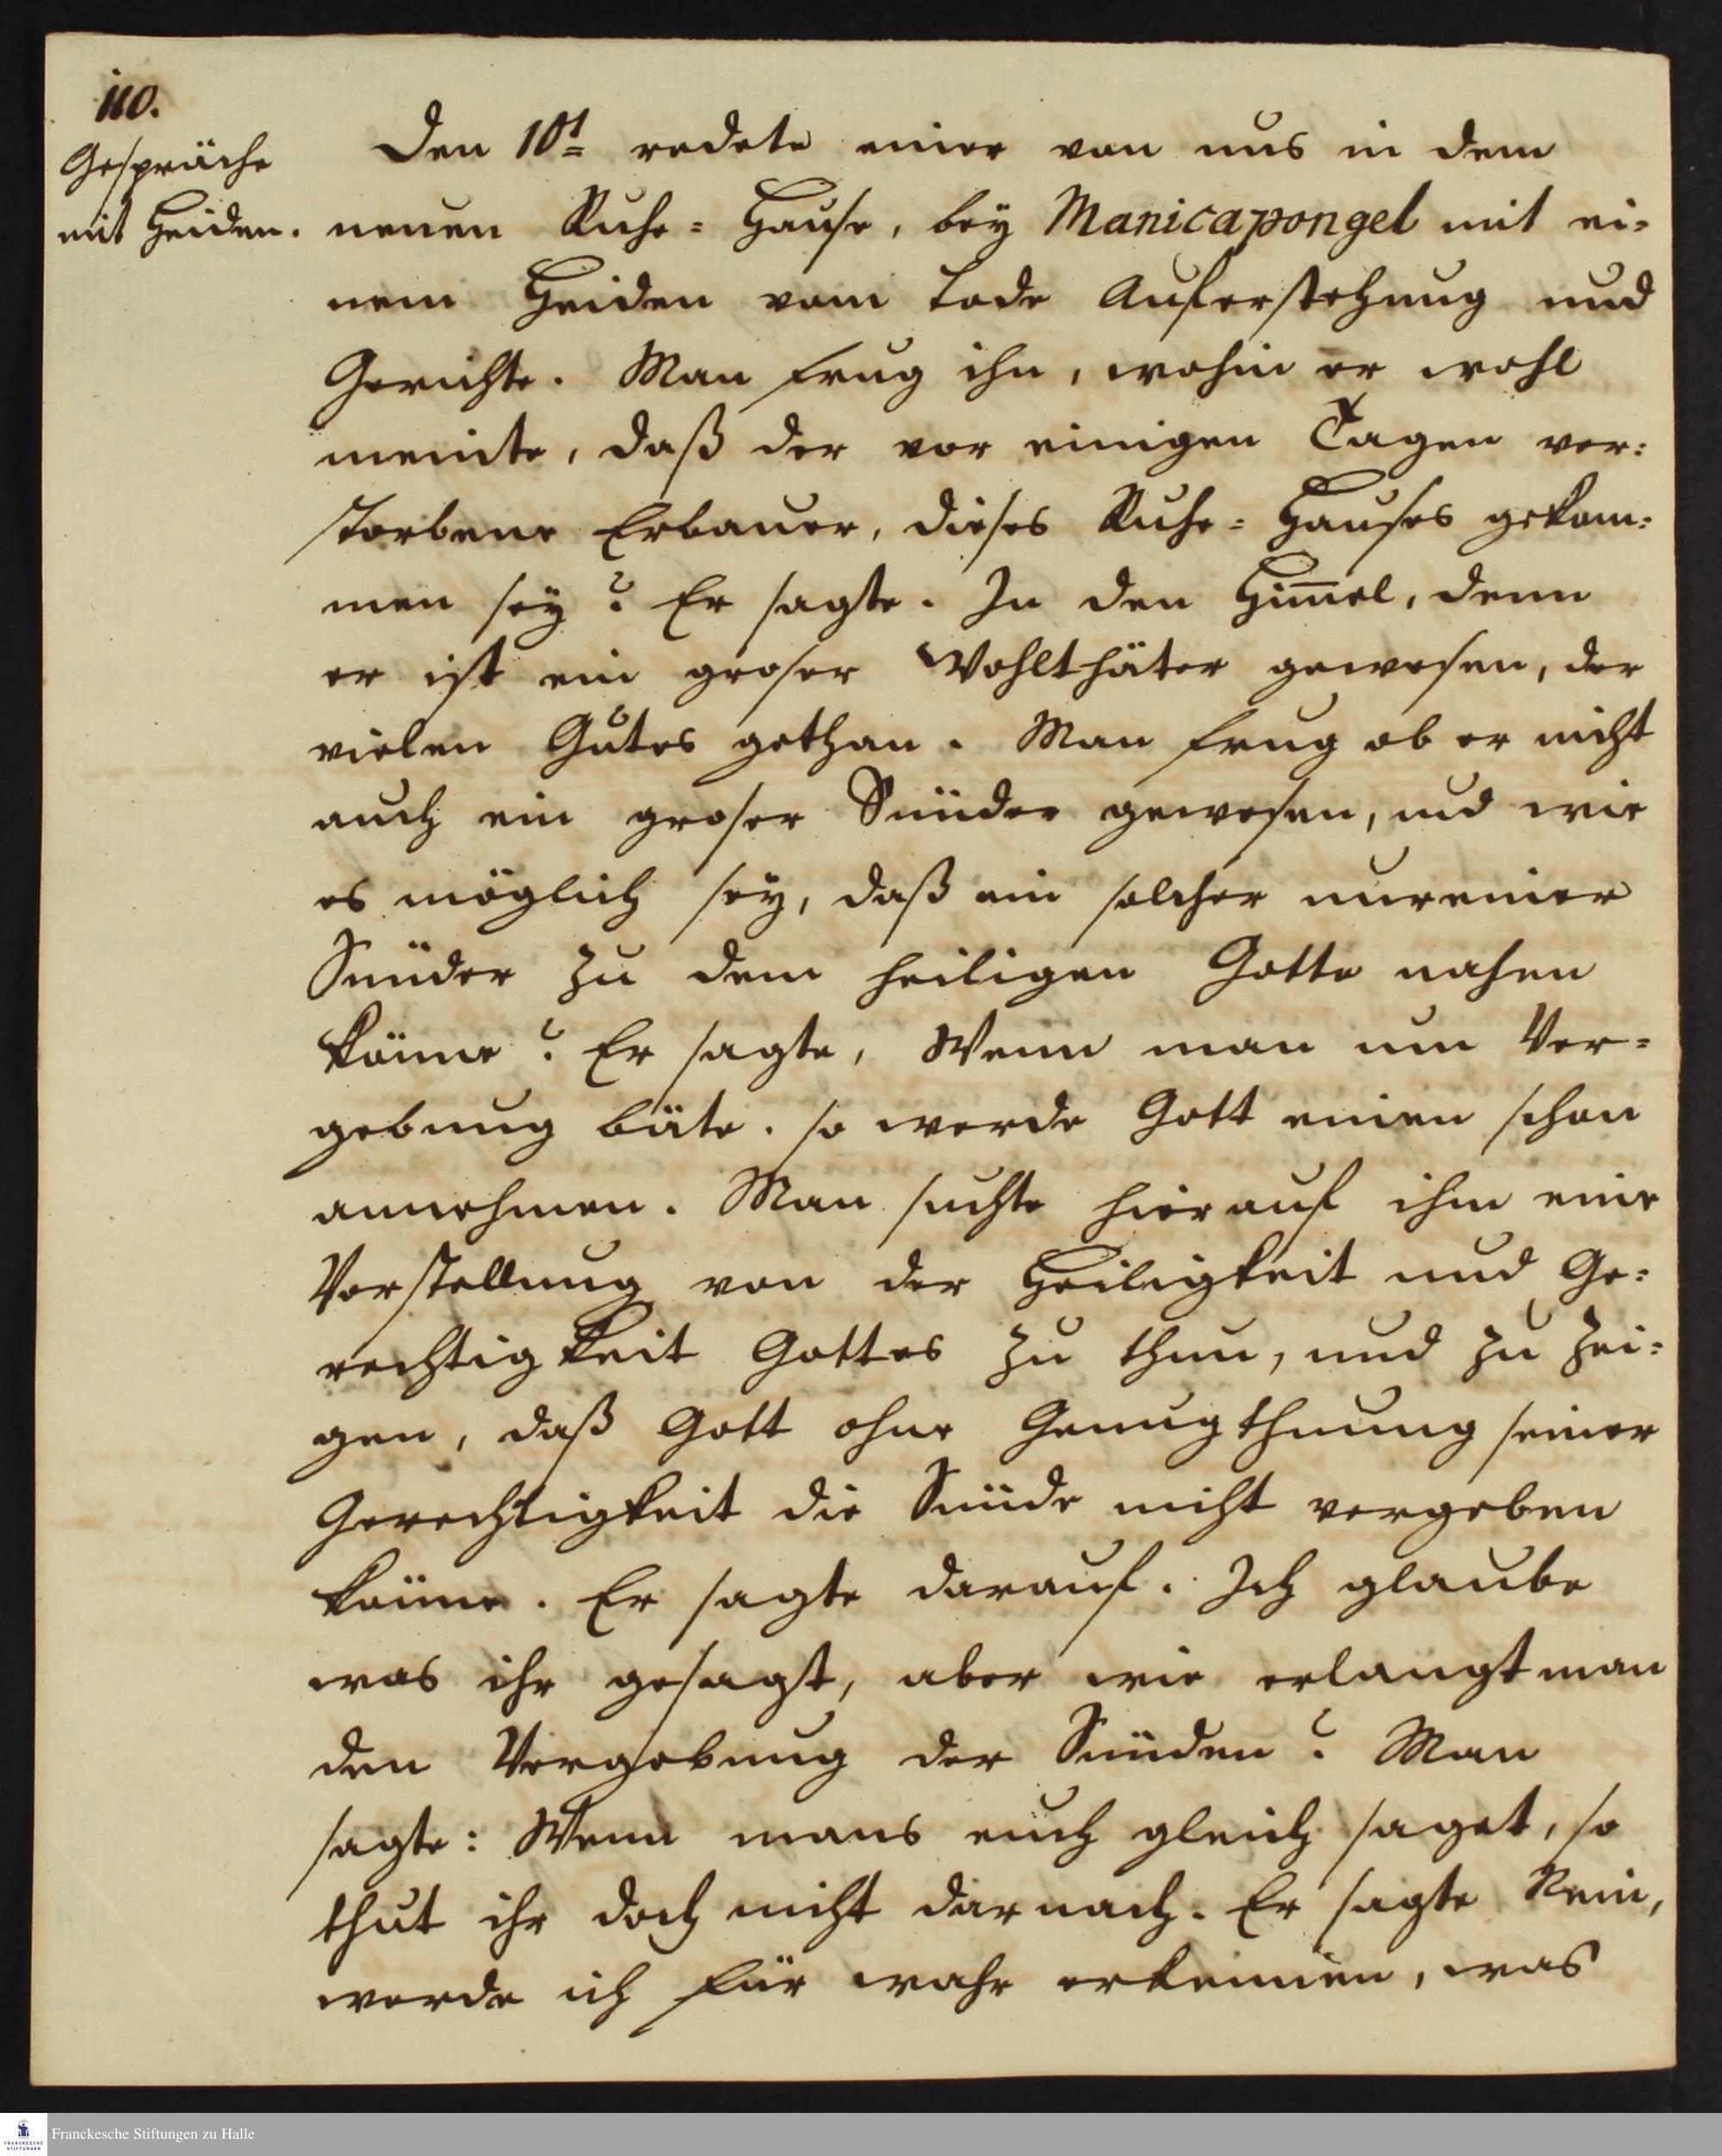 110.
Gespräche
mit Heiden.
Den 10t redete einer von uns in dem
neuen Ruhe= Hause, bey Manicapongel mit ei=
nem Heiden vom Tode Auferstehung und
Gerichte. Man frug ihn, wohin er wohl
meinte, daß der vor einigen Tagen ver=
storbene Erbauer, dieses Ruhe= Hauses gekom=
men sey? Er sagte. In den Him̄el, denn
er ist ein groser Wohlthäter gewesen, der
vielen Gutes gethan. Man frug ob er nicht
auch ein groser Sünder gewesen, und wie
es möglich sey, daß ein solcher unreiner
Sünder zu dem heiligen Gotte nahen
könne? Er sagte, Wenn man um Ver=
gebung bäte. so werde Gott einen schon
annehmen. Man suchte hierauf ihm eine
Vorstellung von der Heiligkeit und Ge=
rechtigkeit Gottes zu thun, und zu zei=
gen, daß Gott ohne Genugthuung seiner
Gerechtigkeit die Sünde nicht vergeben
könne. Er sagte darauf. Ich glaube
was ihr gesagt, aber wie erlangt man
den Vergebung der Sünden? Man
sagte: Wenn mans euch gleich saget, so
thut ihr doch nicht darnach. Er sagte Nein,
werde ich für wahr erkennen, was
Franckesche Stiftungen zu Halle
FRANCKESCHE
STIFTUNGEN